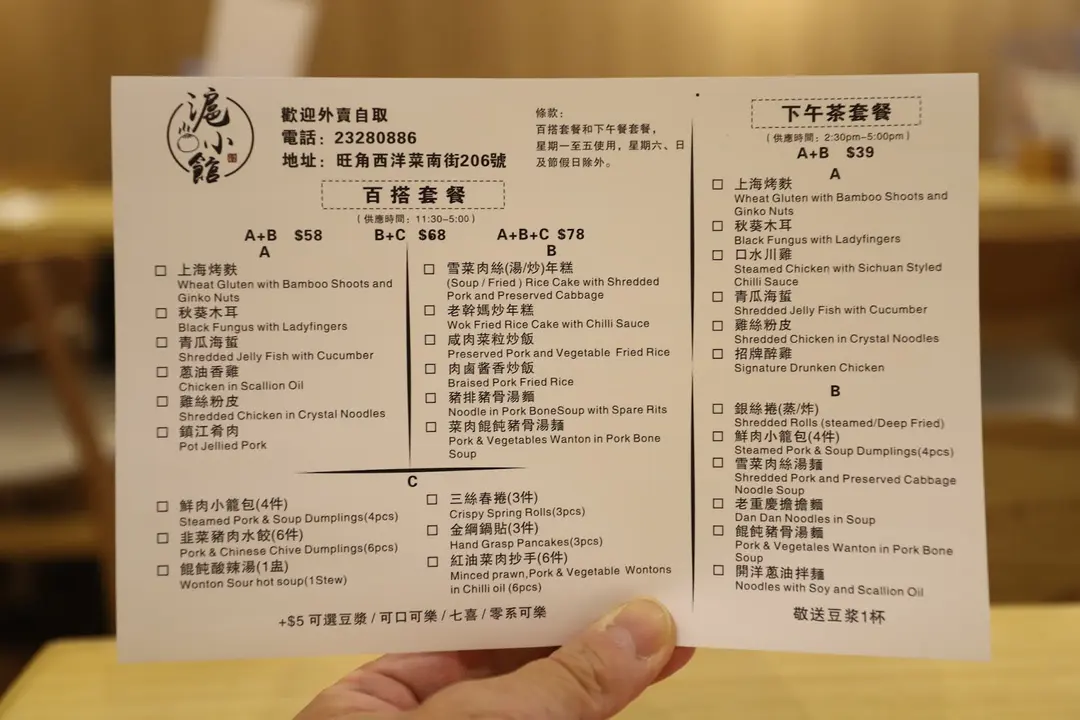 滬小館
歡迎外賣自取
電話：23280886
地址：旺角西洋菜南街206號
條款：
百搭套餐和下午餐套餐，
星期一至五使用，星期六、日
及節假日除外。
百搭套餐
(供應時間：11:30–5:00)
A+B $58 B+C $68 A+B+C $78
A
□ 上海烤麩
Wheat Gluten with Bamboo Shoots and
Ginko Nuts
□ 秋葵木耳
Black Fungus with Ladyfingers
□ 青瓜海蜇
Shredded Jelly Fish with Cucumber
□ 蔥油香雞
Chicken in Scallion Oil
□ 雞絲粉皮
Shredded Chicken in Crystal Noodles
□ 鎮江肴肉
Pot Jellied Pork
B
□ 雪菜肉絲(湯/炒)年糕
(Soup / Fried ) Rice Cake with Shredded
Pork and Preserved Cabbage
□ 老幹媽炒年糕
Wok Fried Rice Cake with Chilli Sauce
□ 咸肉菜粒炒飯
Preserved Pork and Vegetable Fried Rice
□ 肉鹵醬香炒飯
Braised Pork Fried Rice
□ 豬排豬骨湯麵
Noodle in Pork BoneSoup with Spare Rits
□ 菜肉餛飩豬骨湯麵
Pork & Vegetables Wanton in Pork Bone
Soup
C
□ 鮮肉小籠包(4件)
Steamed Pork & Soup Dumplings(4pcs)
□ 韭菜豬肉水餃(6件)
Pork & Chinese Chive Dumplings(6pcs)
□ 餛飩酸辣湯(1盅)
Wonton Sour hot soup(1Stew)
□ 三絲春捲(3件)
Crispy Spring Rolls(3pcs)
□ 金綱鍋貼(3件)
Hand Grasp Pancakes(3pcs)
□ 紅油菜肉抄手(6件)
Minced prawn,Pork & Vegetable Wontons
in Chilli oil (6pcs)
+$5 可選豆漿 / 可口可樂 / 七喜 / 零系可樂
下午茶套餐
(供應時間：2:30pm–5:00pm)
A+B $39
A
□ 上海烤麩
Wheat Gluten with Bamboo Shoots and
Ginko Nuts
□ 秋葵木耳
Black Fungus with Ladyfingers
□ 口水川雞
Steamed Chicken with Sichuan Styled
Chilli Sauce
□ 青瓜海蜇
Shredded Jelly Fish with Cucumber
□ 雞絲粉皮
Shredded Chicken in Crystal Noodles
□ 招牌醉雞
Signature Drunken Chicken
B
□ 銀絲捲(蒸/炸)
Shredded Rolls (steamed/Deep Fried)
□ 鮮肉小籠包(4件)
Steamed Pork & Soup Dumplings(4pcs)
□ 雪菜肉絲湯麵
Shredded Pork and Preserved Cabbage
Noodle Soup
□ 老重慶擔擔麵
Dan Dan Noodles in Soup
□ 餛飩豬骨湯麵
Pork & Vegetales Wanton in Pork Bone
Soup
□ 開洋蔥油拌麵
Noodles with Soy and Scallion Oil
敬送豆浆1杯